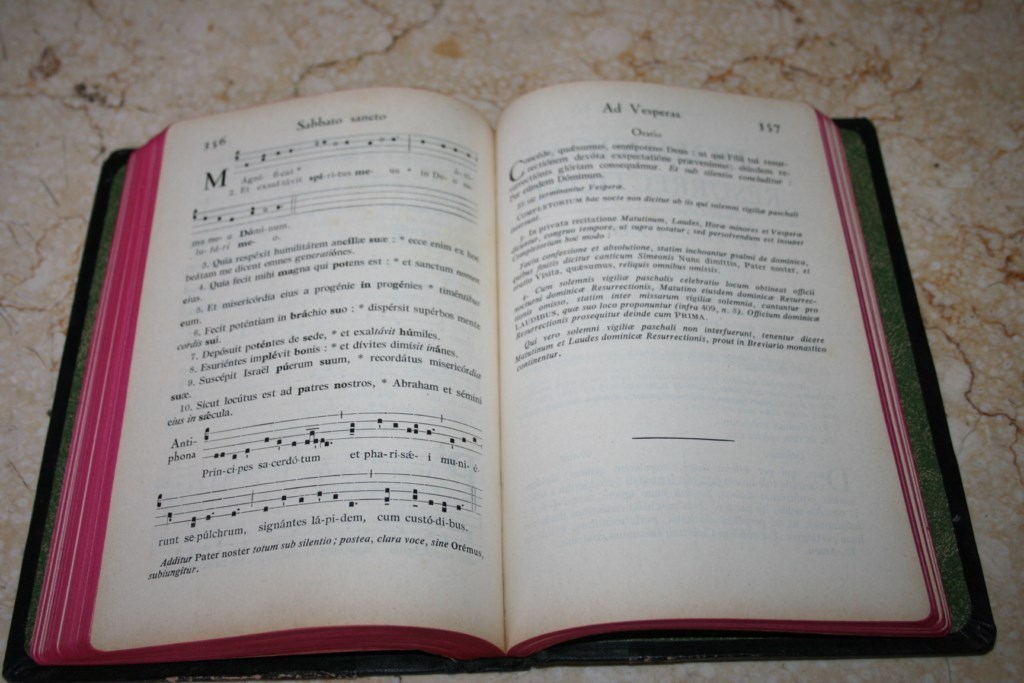 356
Sabbato sancto
M Agní- ficat * á-ni-
2. Et exsultávit spí-ri-tus me- us * in De- o sa-
ma me- a Dómi-num.
lu-tá-ri me- o.
3. Quia respéxit humilitátem ancíllæ suæ : * ecce enim ex hoc
beátam me dicent omnes generatiónes.
4. Quia fecit mihi magna qui potens est : * et sanctum nomen
eius.
5. Et misericórdia eius a progénie in progénies * timéntibus
eum.
6. Fecit poténtiam in bráchio suo : * dispérsit supérbos mente
cordis sui.
7. Depósuit poténtes de sede, * et exaltávit húmiles.
8. Esuriéntes implévit bonis : * et dívites dimísit inánes.
9. Suscépit Israël púerum suum, * recordátus misericórdiæ
suæ.
10. Sicut locútus est ad patres nostros, * Abraham et sémini
eius in sǽcula.
Anti-
phona
Prín-ci-pes sa-cerdó-tum et pha-ri-sǽ- i mu-ni- é-
runt se-púlchrum, signántes lá-pi-dem, cum custó-di-bus.
Additur Pater noster totum sub silentio ; postea, clara voce, sine Orémus,
subiungitur.
Ad Vesperas
357
Oratio
Concéde, quǽsumus, omnípotens Deus : ut qui Fílii tui resur-
rectiónem devóta exspectatióne prævenímus; eiúsdem re-
surrectiónis glóriam consequámur. Et sub silentio concluditur :
Per eúndem Dóminum.
Et sic terminantur Vesperæ.
COMPLETORIUM hac nocte non dicitur ab iis qui solemni vigiliæ paschali
intersunt.
3. In privata recitatione Matutinum, Laudes, Horæ minores et Vesperæ
dicuntur, congruo tempore, ut supra notatur ; sed persolvendum est insuper
Completorium hoc modo :
Facta confessione et absolutione, statim inchoantur psalmi de dominica,
quibus finitis dicitur canticum Simeonis Nunc dimittis, Pater noster, et
oratio Visita, quæsumus, reliquis omnibus omissis.
4. Cum solemnis vigiliæ paschalis celebratio locum obtineat officii
nocturni dominicæ Resurrectionis, Matutino eiusdem dominicæ Resurrec-
tionis omisso, statim inter missarum vigiliæ solemnia, cantantur pro
LAUDIBUS, quæ suo loco proponuntur (infra 409, n. 8). Officium dominicæ
Resurrectionis prosequitur deinde cum PRIMA.
Qui vero solemni vigiliæ paschali non interfuerunt, tenentur dicere
Matutinum et Laudes dominicæ Resurrectionis, prout in Breviario monastico
continentur.